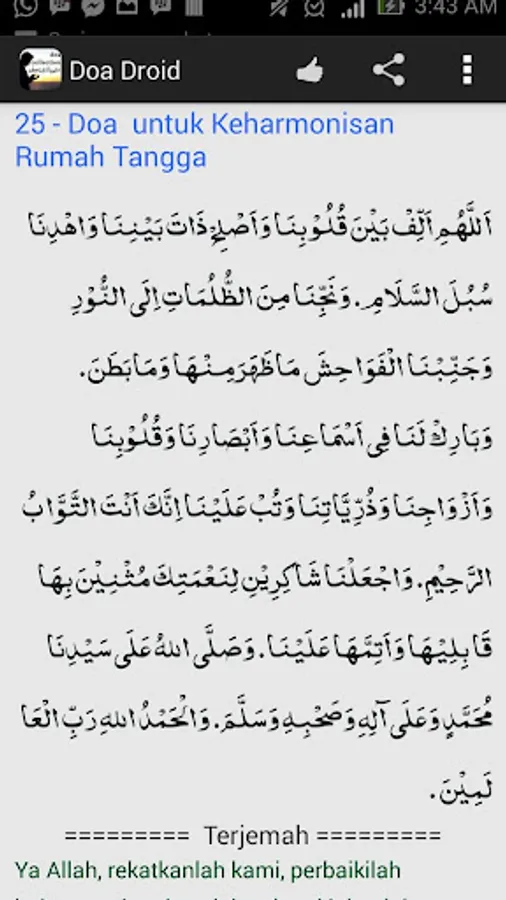 3:43 AM
Doa Droid
25 - Doa untuk Keharmonisan
Rumah Tangga
اَللّٰهُمَّ اَلِّفْ بَيْنَ قُلُوْبِنَا وَاَصْلِحْ ذَاتَ بَيْنِنَا وَاهْدِنَا
سُبُلَ السَّلَامِ. وَنَجِّنَا مِنَ الظُّلُمَاتِ اِلَى النُّوْرِ
وَجَنِّبْنَا الْفَوَاحِشَ مَا ظَهَرَ مِنْهَا وَمَا بَطَنَ.
وَبَارِكْ لَنَا فِى اَسْمَاعِنَا وَاَبْصَارِنَا وَقُلُوْبِنَا
وَاَزْوَاجِنَا وَذُرِّيَّاتِنَا وَتُبْ عَلَيْنَا اِنَّكَ اَنْتَ التَّوَّابُ
الرَّحِيْمِ. وَاجْعَلْنَا شَاكِرِيْنِ لِنَعْمَتِكَ مُثْنِيْنَ بِهَا
قَابِلِيْهَا وَاَتِمَّهَا عَلَيْنَا. وَصَلَّى اللهُ عَلَى سَيْدِنَا
مُحَمَّدٍ وَعَلَى آلِهِ وَصَحْبِهِ وَسَلَّمَ. وَالْحَمْدُ للهِ رَبِّ الْعَا
لَمِيْنَ.
========= Terjemah =========
Ya Allah, rekatkanlah kami, perbaikilah